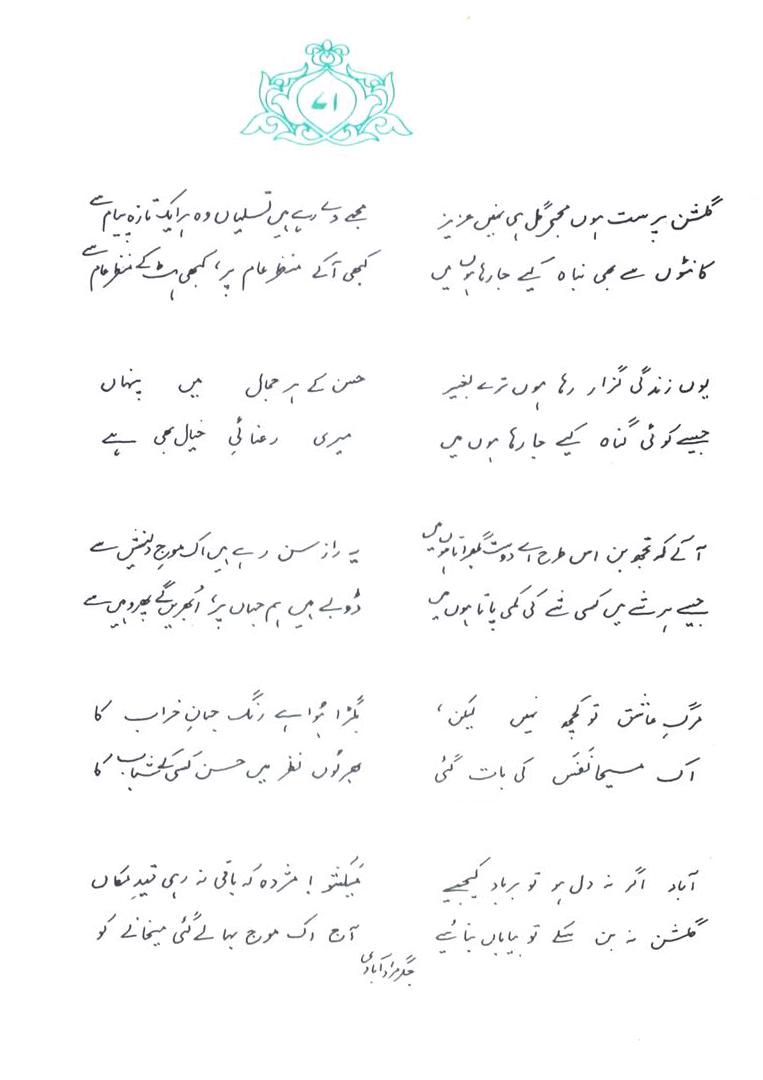 ۷۱
گلشن پرست ہوں مجھے گل ہی نہیں عزیز
کانٹوں سے بھی نباہ کیے جا رہا ہوں میں
مجھے دے رہے ہیں تسلیاں وہ ہر ایک تازہ پیام سے
کبھی آکے منظر عام پر، کبھی ہٹ کے منظر عام سے
یوں زندگی گزار رہا ہوں ترے بغیر
جیسے کوئی گناہ کیے جا رہا ہوں میں
حسن کے ہر جمال میں پنہاں
میری رعنائیِ خیال بھی ہے
آ کے کہ تجھ بن اس طرح اے دوست گھبراتا ہوں میں
جیسے ہر شے میں کسی شے کی کمی پاتا ہوں میں
یہ راز سن رہے ہیں اک موجِ تہ نشیں سے
ڈوبے ہیں ہم جہاں پر، اُبھریں گے پھر وہیں سے
مرگِ عاشق تو کچھ نہیں لیکن،
اک مسیحا نَفَس کی بات گئی
بگڑا ہُوا ہے رنگ جہانِ خراب کا
بھرلُوں نظر میں حسن کسی کے شباب کا
آباد اگر نہ دل ہو تو برباد کیجیے
گلشن نہ بن سکے تو بیاباں بنائیے
مَیکشو! مژدہ کہ باقی نہ رہی قیدِ مکاں
آج اک موج بہا لے گئی میخانے کو
جگر مراد آبادی